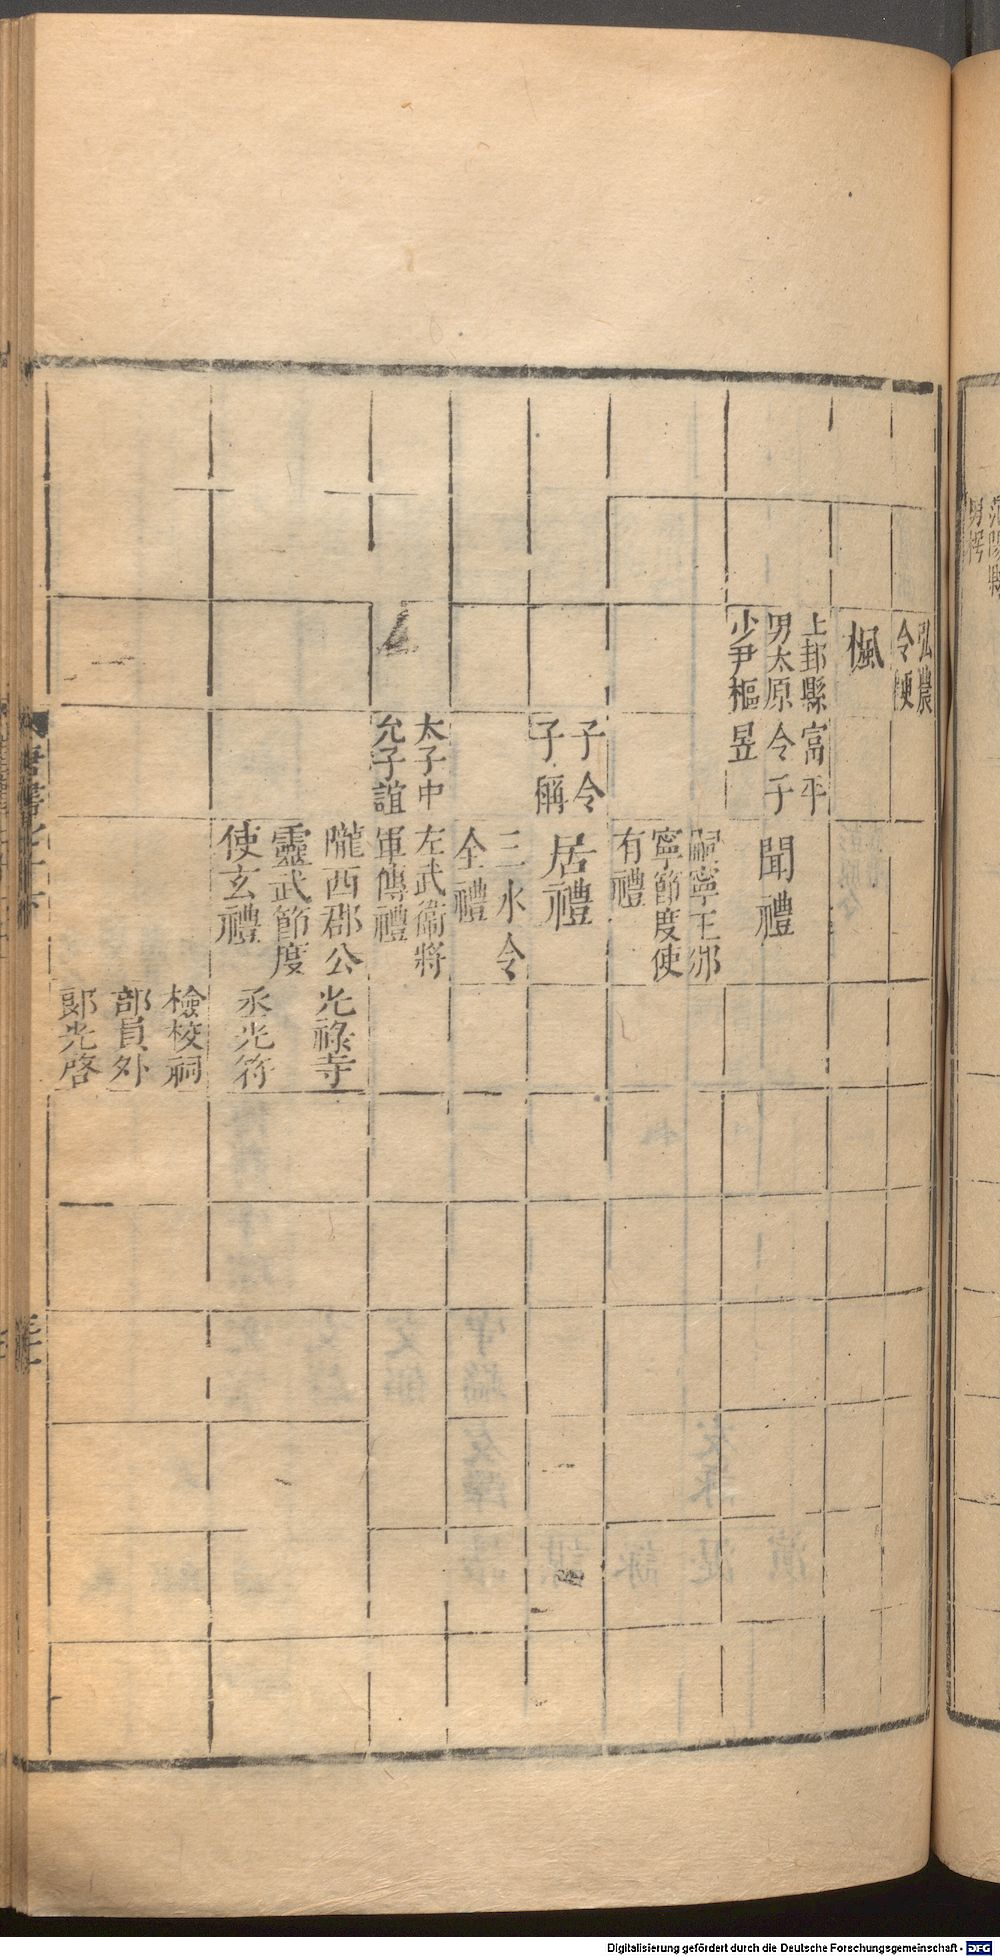 弘農
令梗
楓
上邽縣
男太原
少尹樞
富平
令子
昱
聞禮
嗣寧王邠
寧節度使
有禮
子令
子稱
居禮
三水令
全禮
太子中
允子誼
左武衞將
軍傳禮
隴西郡公
靈武節度
使玄禮
光祿寺
丞光符
檢校祠
部員外
郎光啓
Digitalisierung gefördert durch die Deutsche Forschungsgemeinschaft - DFG